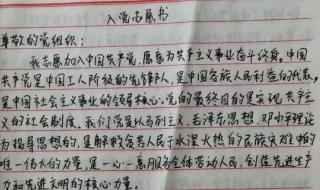 入党志愿书
尊敬的党组织:
我志愿加入中国共产党,愿意为共产主义事业奋斗终身。中国
共产党是中国工人阶级的先锋队,是中国各族人民利益的代表,
是中国社会主义事业的领导核心。党的最终目的是实现共产主
义的社会制度。我们党是以马列主义、毛泽东思想、邓小平理论
为指导思想的,是解救贫苦人民于水深火热的民族灾难中的
唯一伟大的力量,是一心一意服务全体劳动人民,创造先进生产
力和先进文明的核心力量。